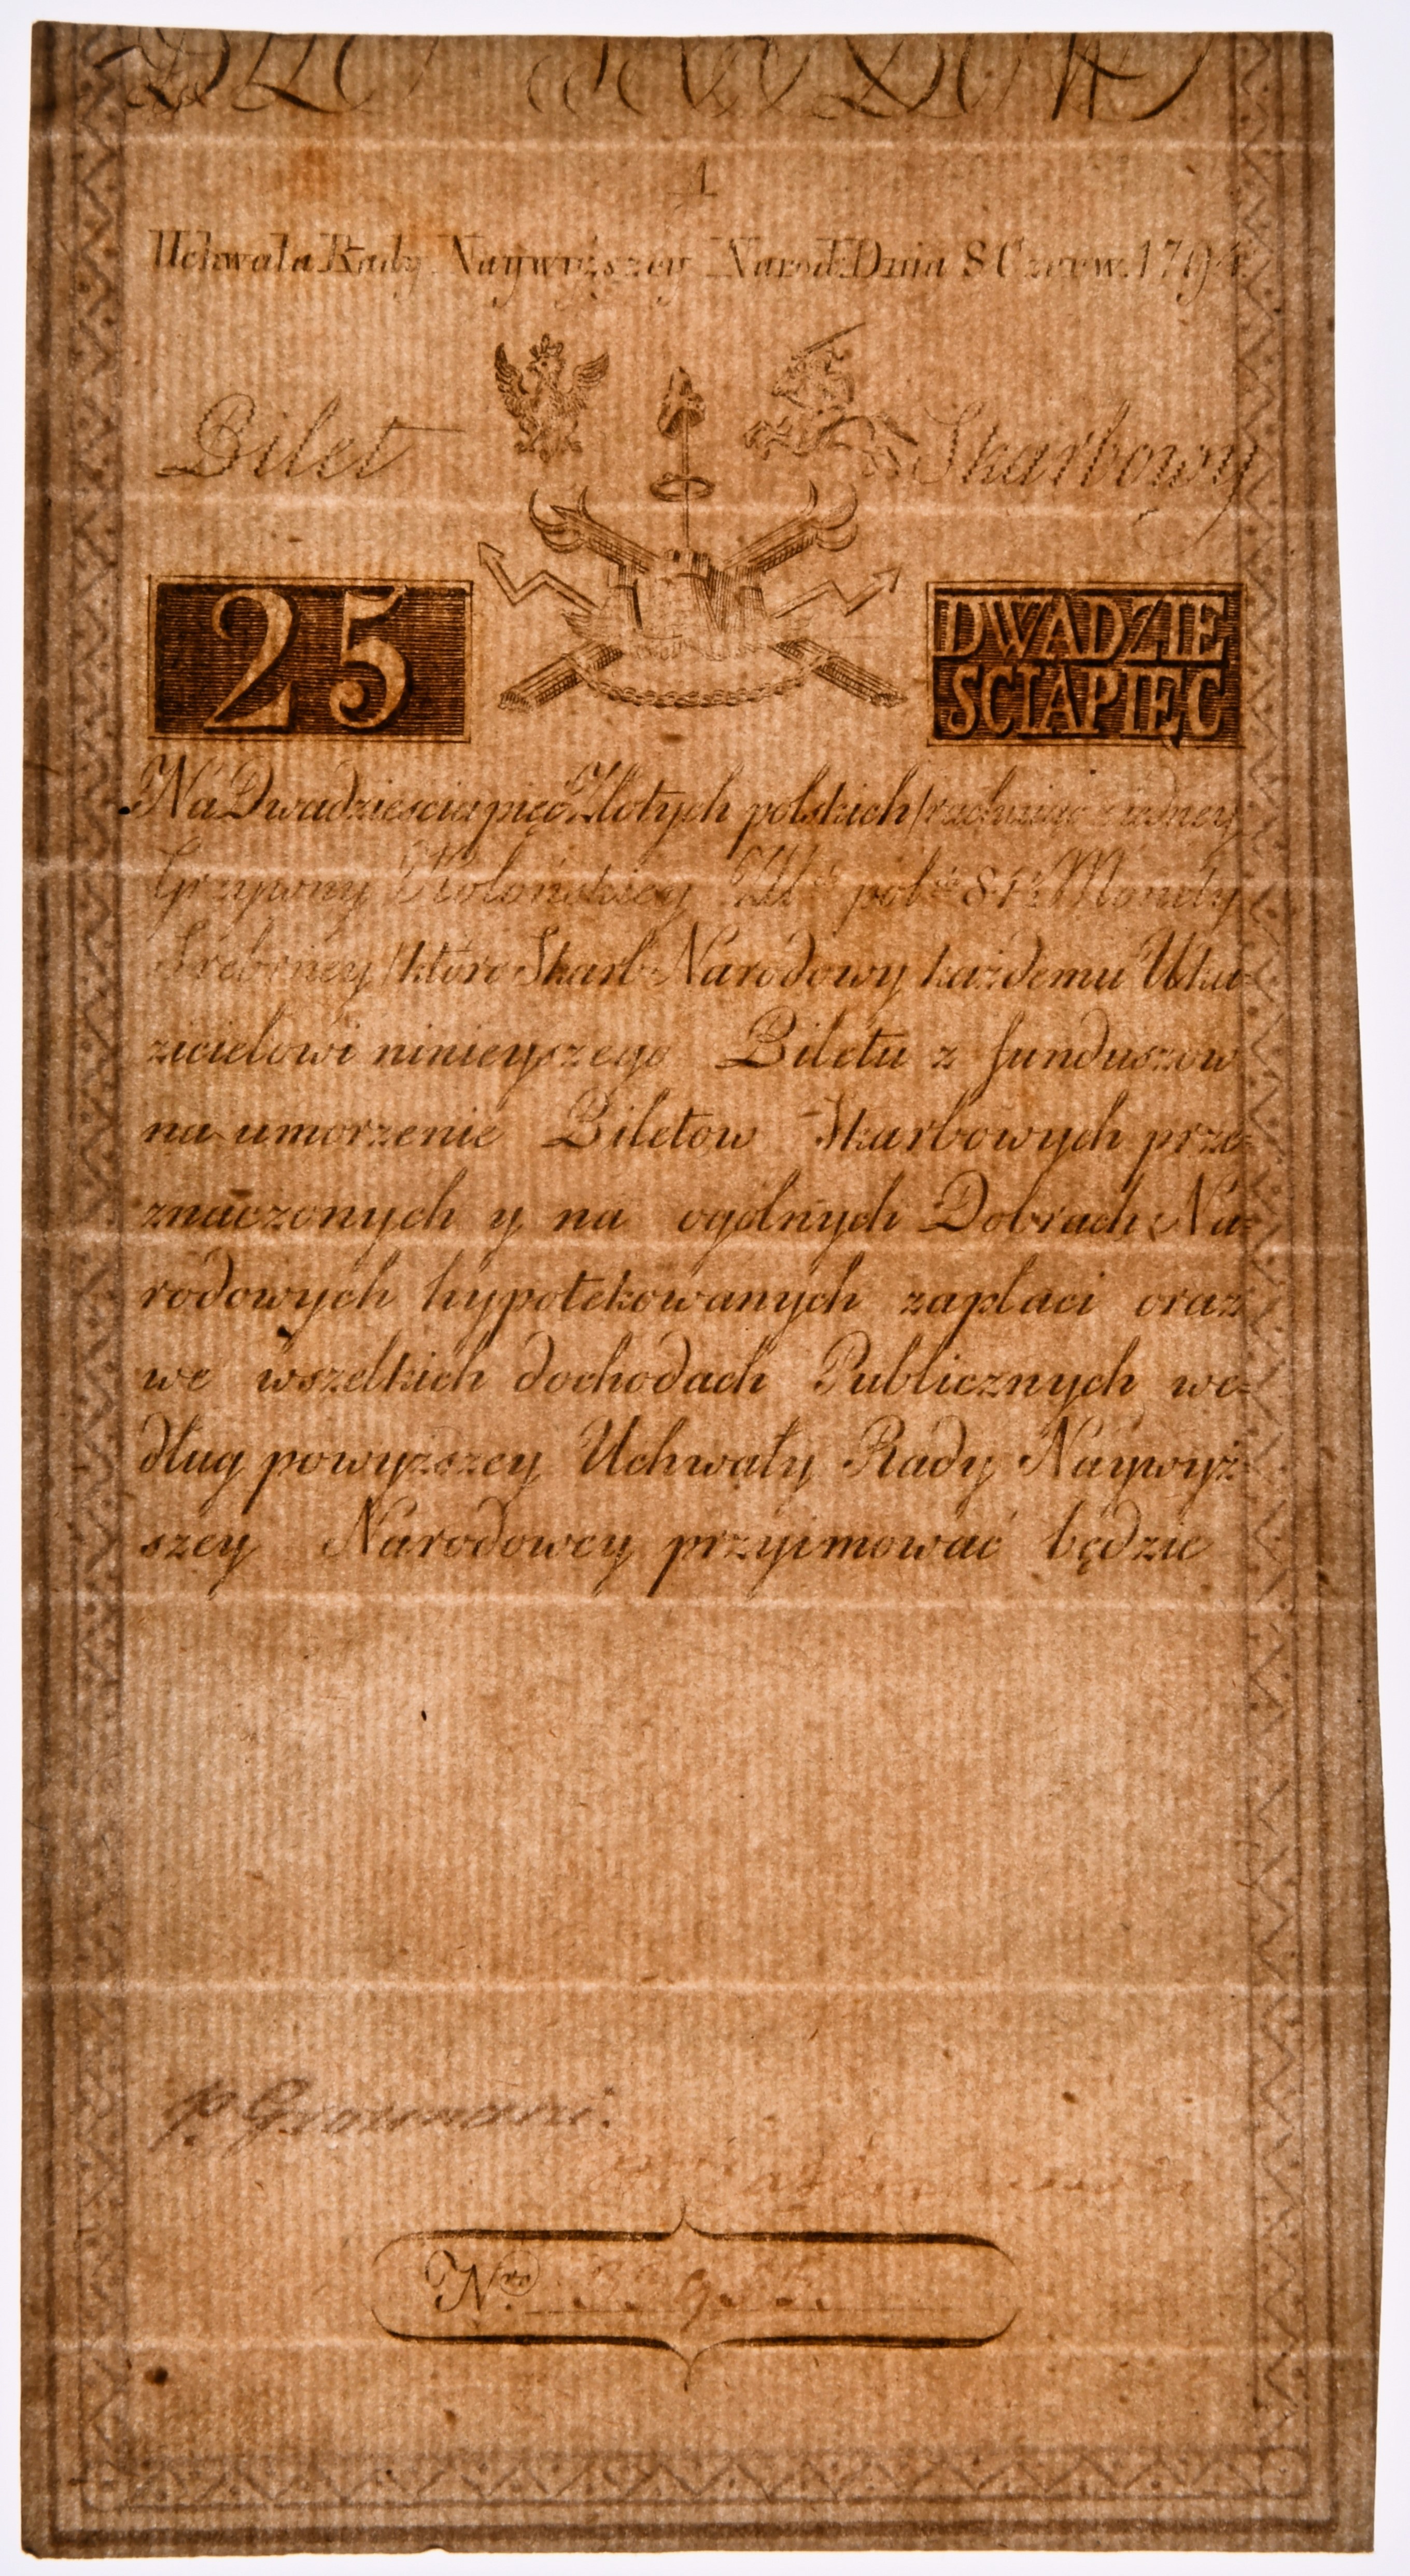 A
Uchwała Rady Naywyższey Narod: Dnia 8 Czerw. 1794
Bilet Skarbowy
25
DWADZIE
SCIAPIĘC
Na Dwadzieściapięć Złotych polskich /rachuiąc z iedney
Grzywny Kolońskiey Zł. pol. 84½ Monety
Srebrney/ które Skarb Narodowy każdemu Uka=
zicielowi ninieyszego Biletu z funduszow
na umorzenie Biletow Skarbowych prze=
znaczonych y na ogolnych Dobrach Na=
rodowych hypotekowanych zapłaci oraz
we wszelkich dochodach Publicznych we=
dług powyższey Uchwały Rady Naywyż=
szey Narodowey przyimować będzie
Nro